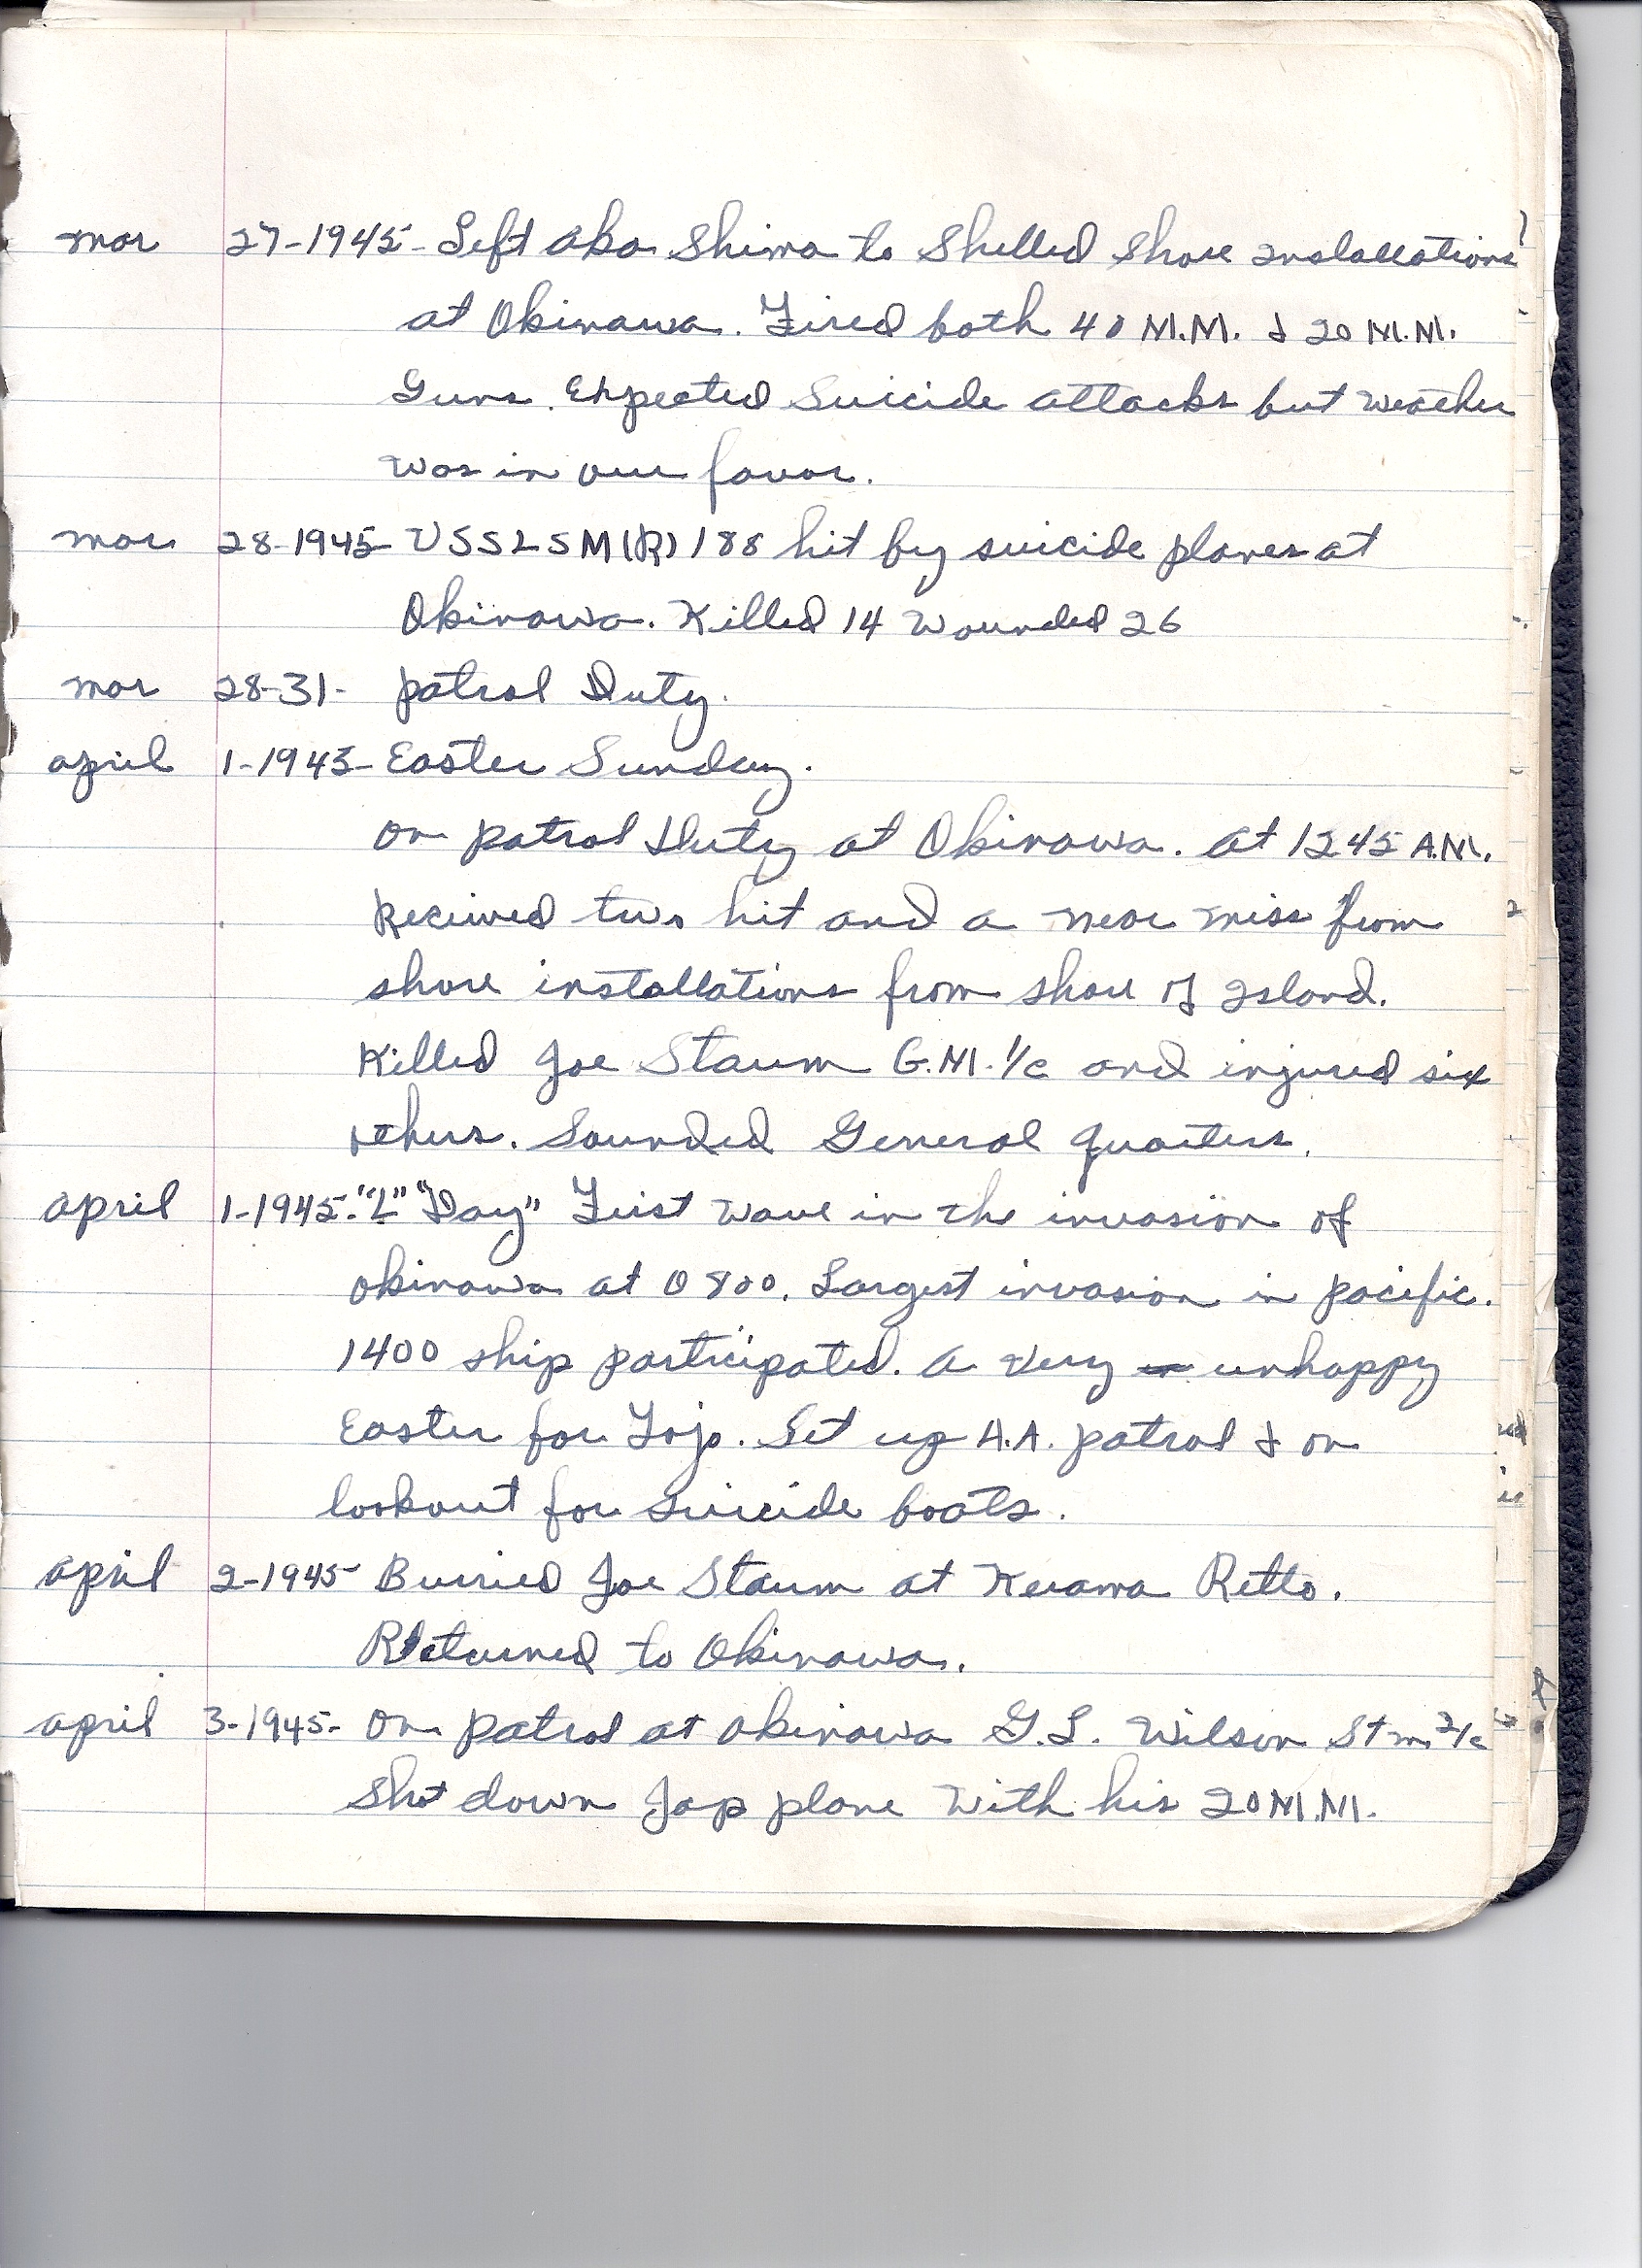 mar 27-1945- Left Aka Shima to Shelled Shore Installations
at Okinawa. Fired both 40 M.M. & 20 M.M.
Guns. Expected Suicide attacks but weather
was in our favor.
mar 28-1945- USS LSM(R) 188 hit by suicide planes at
Okinawa. Killed 14 Wounded 26
mar 28-31- patrol Duty.
april 1-1945- Easter Sunday.
On patrol Duty at Okinawa. at 1245 A.M.
Recieved two hit and a near miss from
shore installations from shore of Island.
Killed Joe Staum G.M. 1/c and injured six
others. Sounded General Quarters.
april 1-1945- "L" "Day" First wave in the invasion of
Okinawa at 0800. Largest invasion in pacific.
1400 ship participated. a very unhappy
Easter for Tojo. Set up A.A. patrol & on
lookout for suicide boats.
april 2-1945- Burried Joe Staum at Kerama Retto.
Returned to Okinawa.
april 3-1945- On patrol at Okinawa G.L. Wilson St m. 2/c
Shot down Jap plane with his 20 M.M.